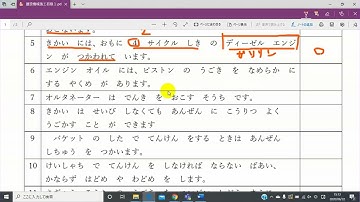 建設機械施工初級_2.pdf
5 きかい には、おもに 4 サイクル しき の ディーゼル エンジ
ン が つかわれて います。
ガソリン
6 エンジン オイル には、ピストン の うごき を なめらか に
する やくめ が あります。
7 オルタネーター は でんき を おこす そうち です。
8 きかい は せいび しなくても あんぜん に こうりつ よく
うごかす こと が できます
9 バケット の した で てんけん を する とき は あんぜん
しちゅう を つかいます。
10 けいしゃち で てんけん を しなければ ならない ばあい、
かならず はどめ や わどめ を します。